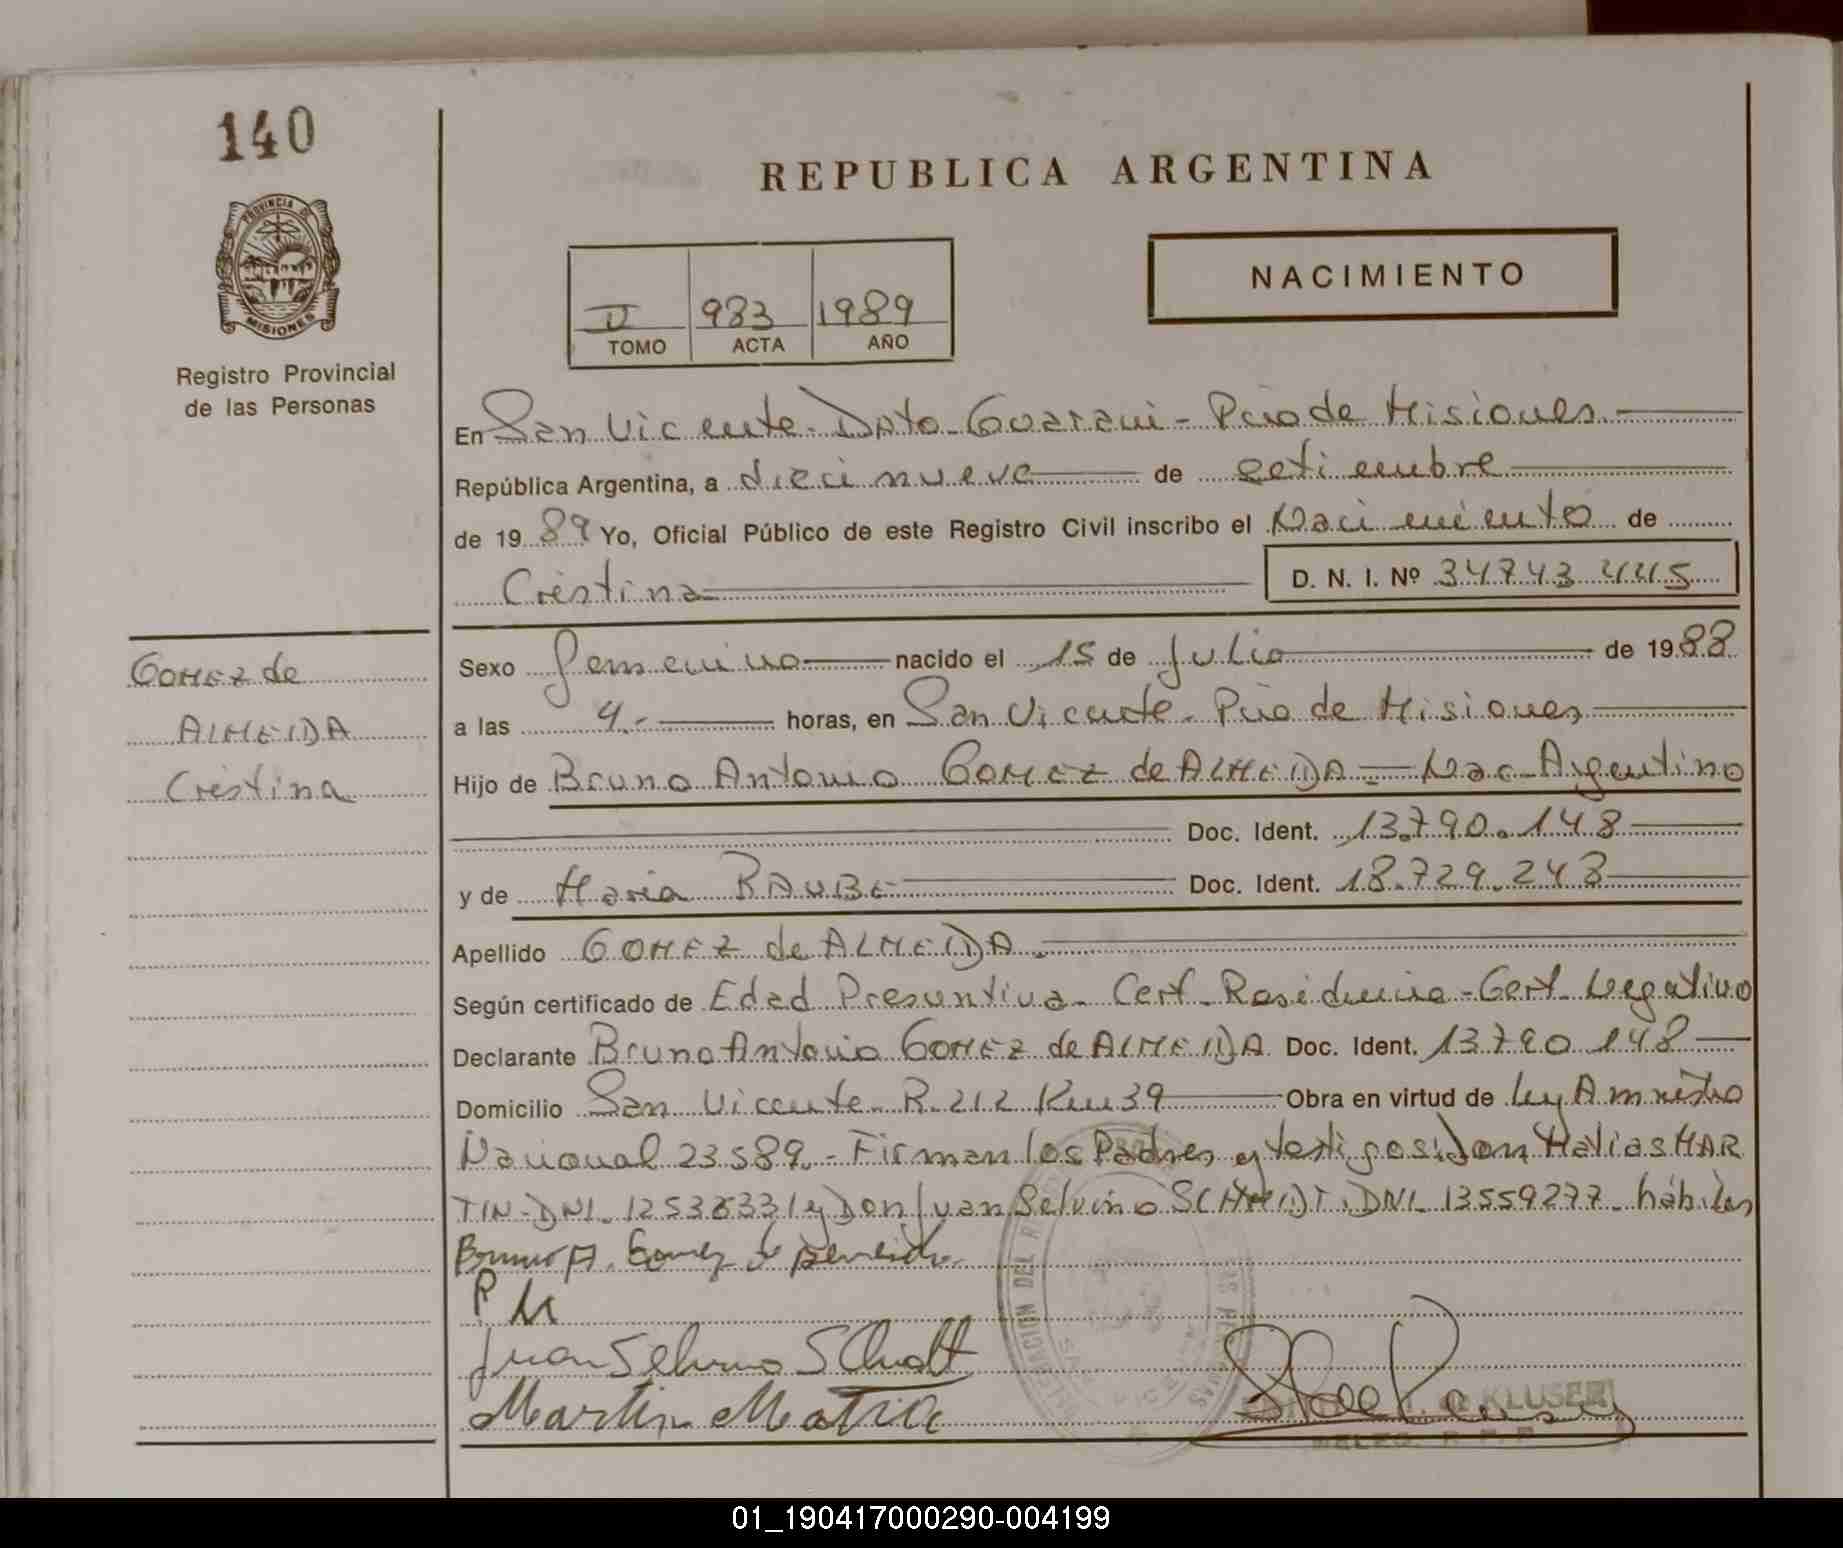 140
REPUBLICA ARGENTINA
PROVINCIA DE
MISIONES
Registro Provincial
de las Personas
II 983 1989
TOMO ACTA AÑO
NACIMIENTO
En San Vicente - Dpto - Guarani - Pcia de Misiones.
República Argentina, a diecinueve de setiembre
de 1989 Yo, Oficial Público de este Registro Civil inscribo el Nacimiento de
Cristina D. N. I. Nº 34743445
GOMEZ de
ALMEIDA
Cristina
Sexo femenino nacido el 15 de Julio de 1988
a las 4.- horas, en San Vicente - Pcia de Misiones
Hijo de Bruno Antonio GOMEZ de ALMEIDA - Nac. Argentino
Doc. Ident. 13.790.148
y de Maria RAUBE Doc. Ident. 18.729.243
Apellido GOMEZ de ALMEIDA.
Según certificado de Edad Presuntiva - Cert. Residencia - Cert. Negativo
Declarante Bruno Antonio GOMEZ de ALMEIDA Doc. Ident. 13790148
Domicilio San Vicente - R. 212 Km 39 Obra en virtud de Ley Amnistia
Nacional 23589. - Firman los Padres y testigos: Don Matias MAR
TIN - DNI. y Don Juan Selvino SCHMIDT. DNI. 13559277 - hábiles
Bruno A. Gomez de Almeida
Juan Selvino
Martin Matia
DELEGACION DEL
KLUSER
01_190417000290-004199